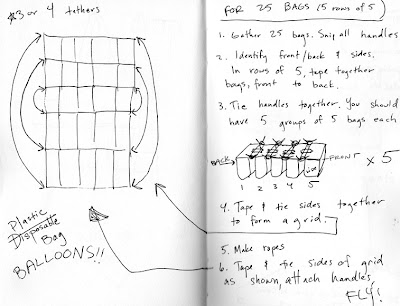 *3 or 4 tethers
Plastic
Disposable
Bag
BALLOONS!!
FOR 25 BAGS (5 rows of 5)
1. Gather 25 bags. Snip all handles
2. Identify front/back & sides.
In rows of 5, tape together
bags, front to back.
3. Tie handles together. You should
have 5 groups of 5 bags each
BACK
FRONT
x 5
1 2 3 4 5
4. Tape & tie sides together
to form a grid.
5. Make ropes
6. Tape & tie sides of grid
as shown, attach handles.
FLY!